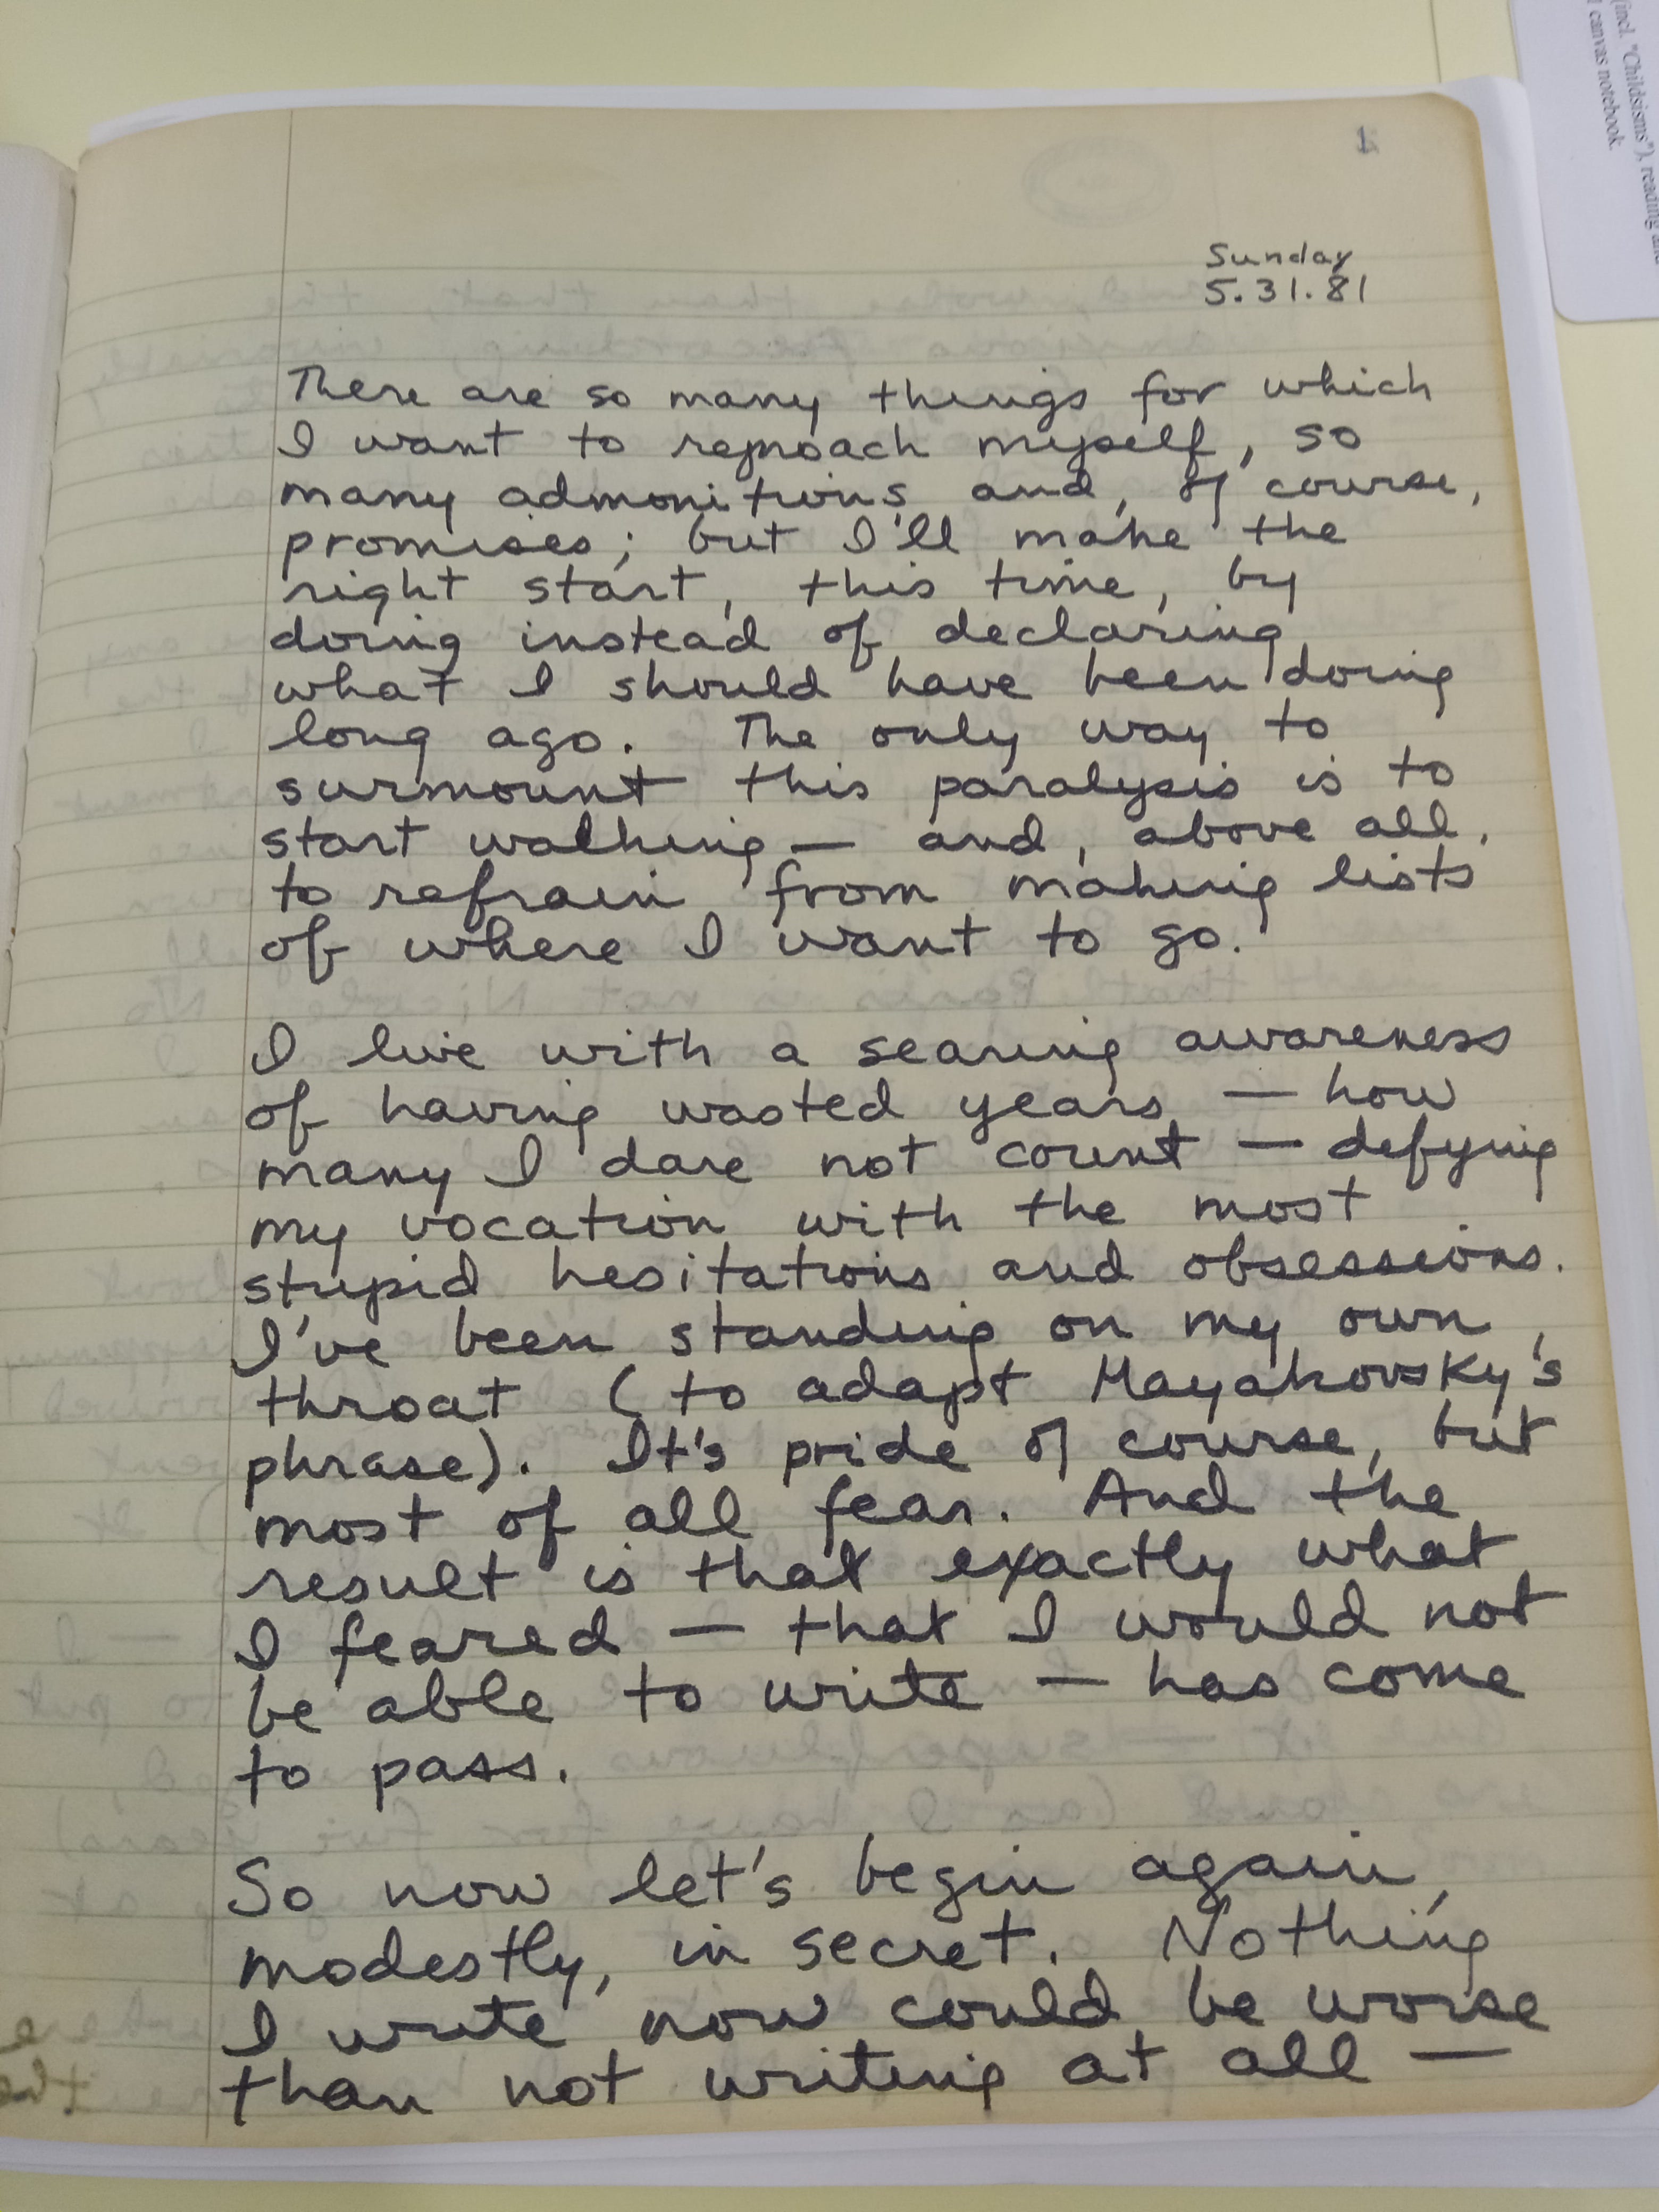 (incl. "Childsisms"), reading and
canvas notebook.
Sunday
5.31.81
There are so many things for which
I want to reproach myself, so
many admonitions and, of course,
promises; but I'll make the
right start, this time, by
doing instead of declaring
what I should have been doing
long ago. The only way to
surmount this paralysis is to
start walking — and, above all,
to refrain from making lists
of where I want to go.
I live with a searing awareness
of having wasted years — how
many I dare not count — defying
my vocation with the most
stupid hesitations and obsessions.
I've been standing on my own
throat (to adapt Mayakovsky's
phrase). It's pride of course, but
most of all fear. And the
result is that exactly what
I feared — that I would not
be able to write — has come
to pass.
So now let's begin again,
modestly, in secret. Nothing
I write now could be worse
than not writing at all —